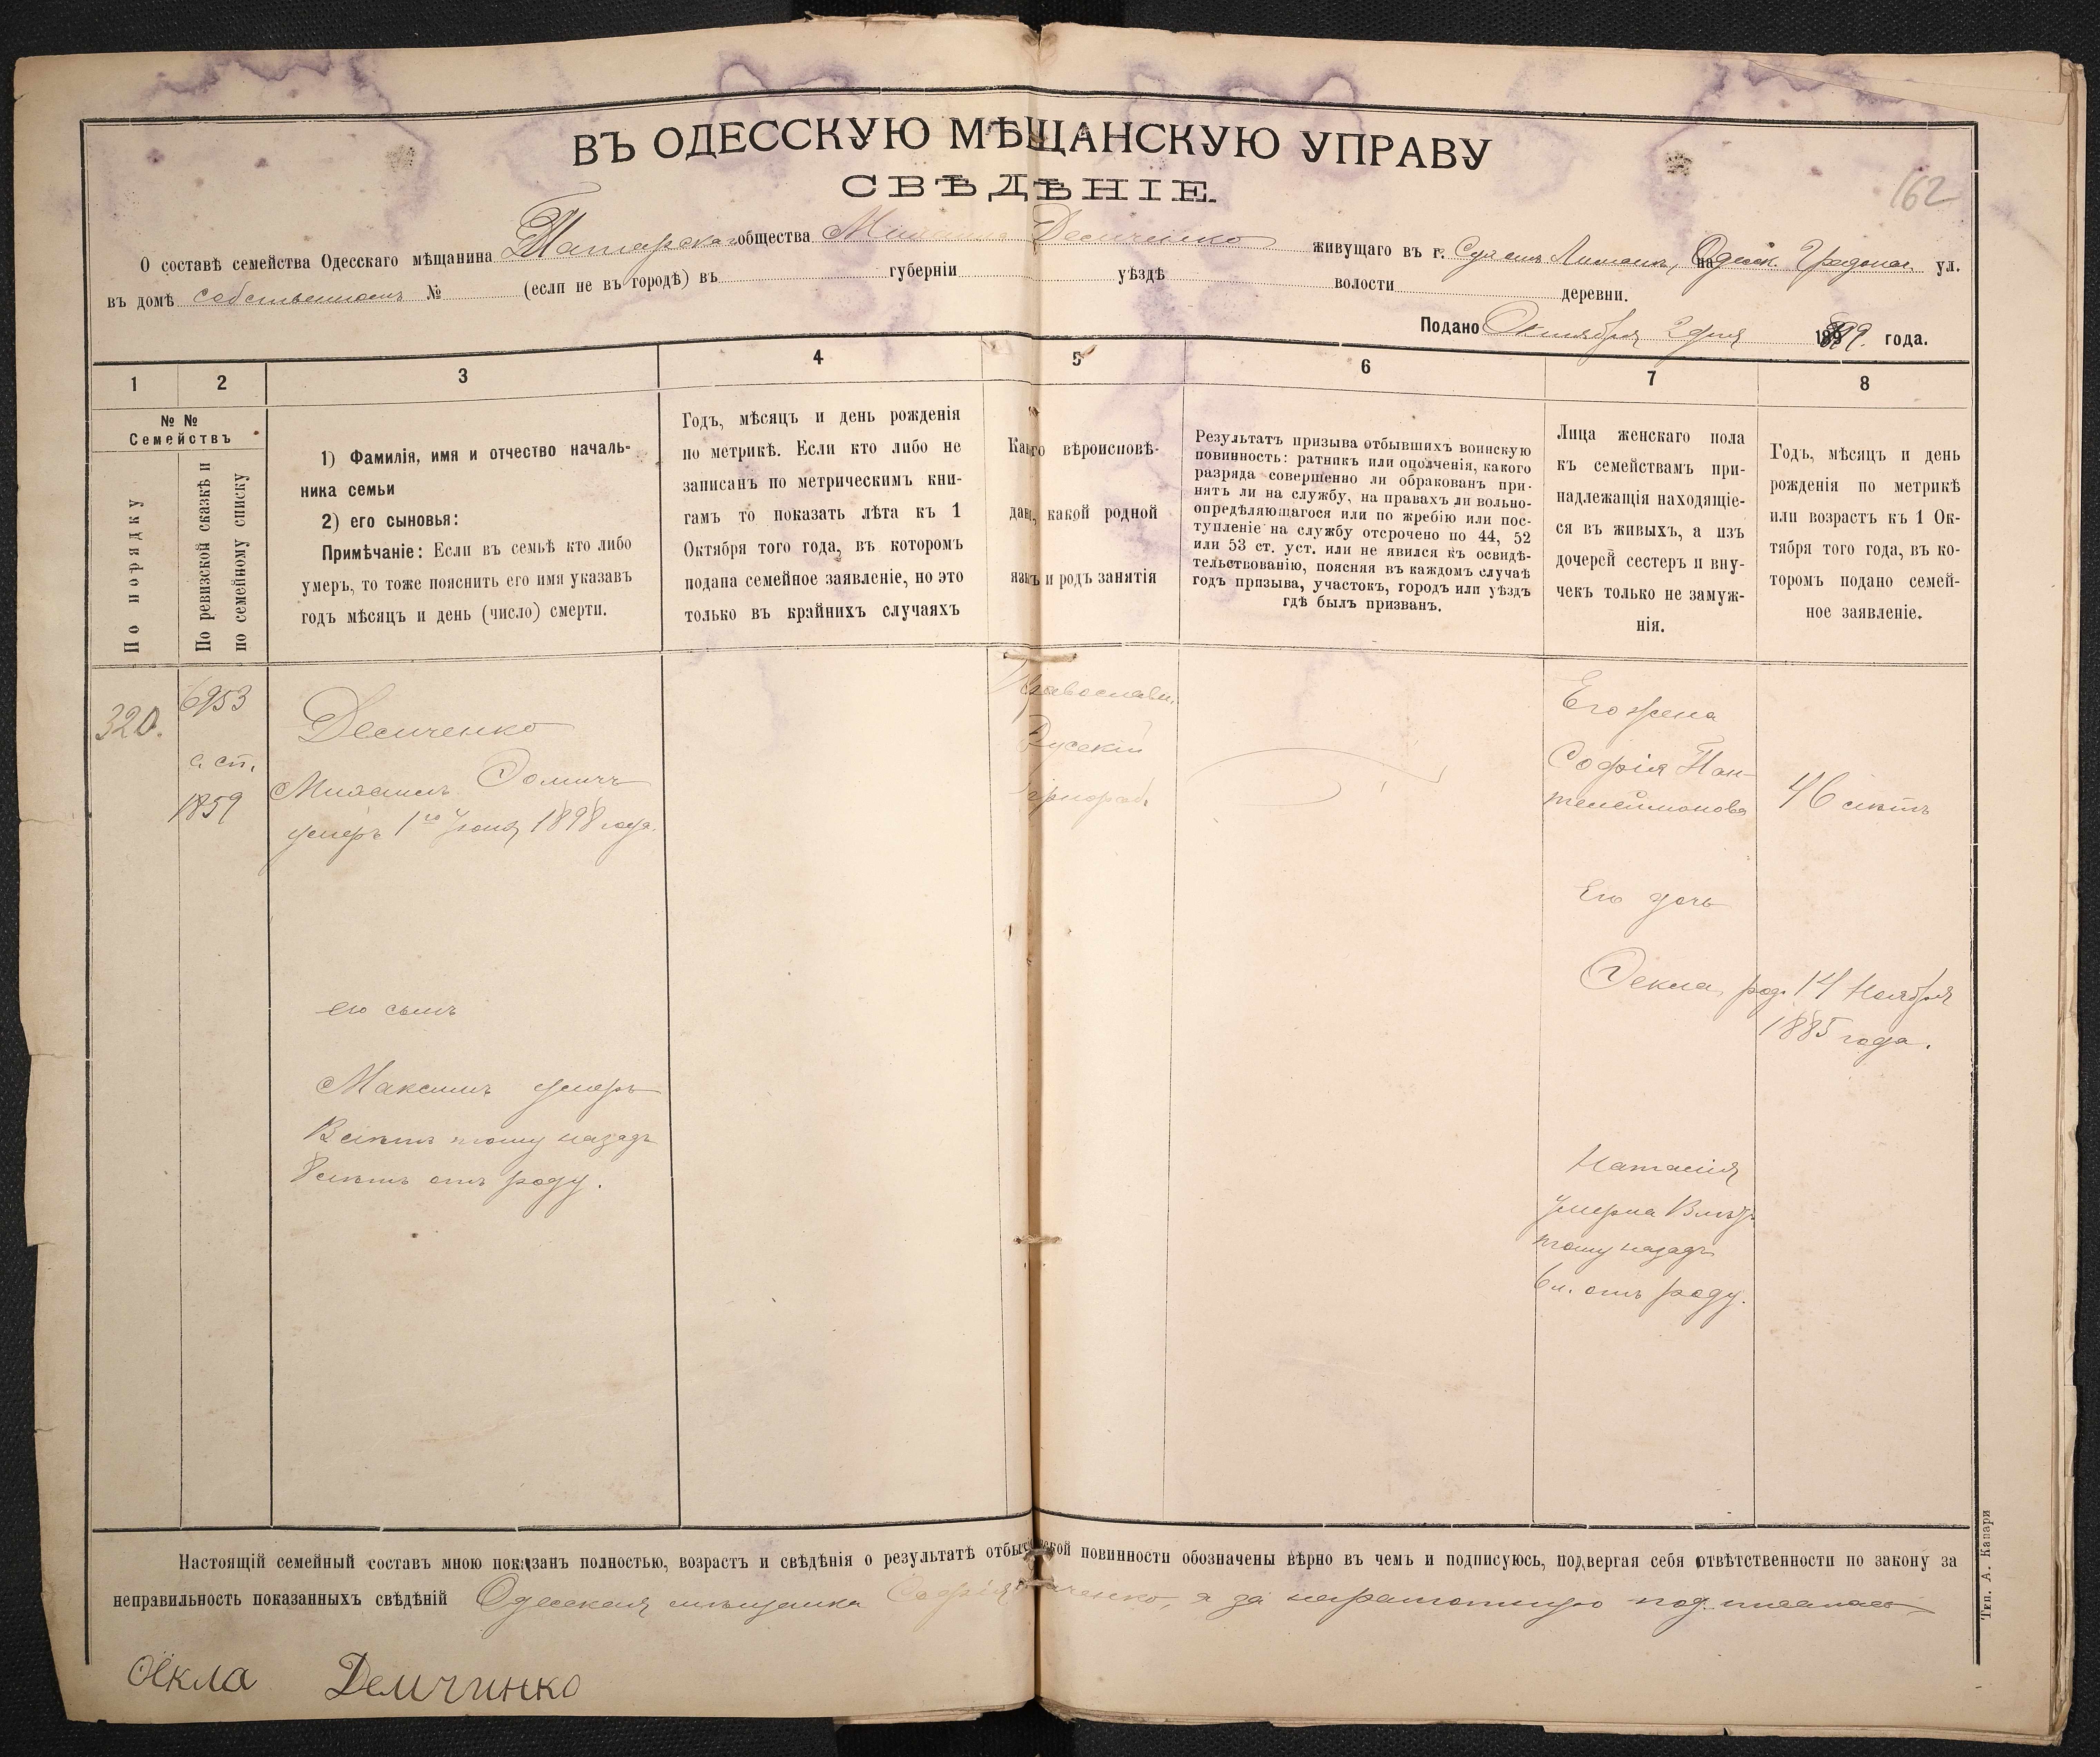 162
ВЪ ОДЕССКУЮ МѢЩАНСКУЮ УПРАВУ
СВѢДѢНІЕ.
О составѣ семейства Одесскаго мѣщанина Татарскаго общества Михаила Демченко живущаго въ г. Сухомъ Лиманѣ, на Одесск. Градонач. ул.
въ домѣ собственномъ № (если не въ городѣ) въ губерніи уѣздѣ волости деревни.
Подано Октября 2 дня 1899 года.
1 2 3 4 5 6 7 8
№ № Семействъ
По порядку
По ревизской сказкѣ и
по семейному списку
1) Фамилія, имя и отчество началь-
ника семьи
2) его сыновья:
Примѣчаніе: Если въ семьѣ кто либо
умеръ, то тоже пояснить его имя указавъ
годъ мѣсяцъ и день (число) смерти.
Годъ, мѣсяцъ и день рожденія
по метрикѣ. Если кто либо не
записанъ по метрическимъ кни-
гамъ то показать лѣта къ 1
Октября того года, въ которомъ
подана семейное заявленіе, но это
только въ крайнихъ случаяхъ
вѣроисповѣ-
какой родной
и родъ занятія
Результатъ призыва отбывшихъ воинскую
повинность: ратникъ или ополченія, какого
разряда совершенно ли обракованъ при-
нятъ ли на службу, на правахъ ли вольно-
опредѣляющагося или по жребію или пос-
тупленіе на службу отсрочено по 44, 52
или 53 ст. уст. или не явился къ освидѣ-
тельствованію, поясняя въ каждомъ случаѣ
годъ призыва, участокъ, городъ или уѣздъ
гдѣ былъ призванъ.
Лица женскаго пола
къ семействамъ при-
надлежащія находящіе-
ся въ живыхъ, а изъ
дочерей сестеръ и вну-
чекъ только не замуж-
нія.
Годъ, мѣсяцъ и день
рожденія по метрикѣ
или возрастъ къ 1 Ок-
тября того года, въ ко-
торомъ подано семей-
ное заявленіе.
320.
6953
с. сп.
1859
Демченко
Михаилъ Ѳомичъ
умеръ 1го Іюня 1898 года.
его сынъ
Максимъ умеръ
8 лѣтъ тому назадъ
8 лѣтъ отъ роду.
Православн.
Русскій
чернораб.
Его жена
Софія Пан-
телеймонова
46 лѣтъ
Его дочь
Ѳекла, род. 14 Ноября
1885 года.
Наталія
умерла 8 лѣтъ
тому назадъ
6 л. отъ роду.
Настоящій семейный составъ мною показанъ полностью, возрастъ и свѣдѣнія о результатѣ повинности обозначены вѣрно въ чемъ и подписуюсь, подвергая себя отвѣтственности по закону за
неправильность показанныхъ свѣдѣній Одесская мѣщанка Софія а за неграмотную
Ѳекла Демчинко
Теп. А. Капари